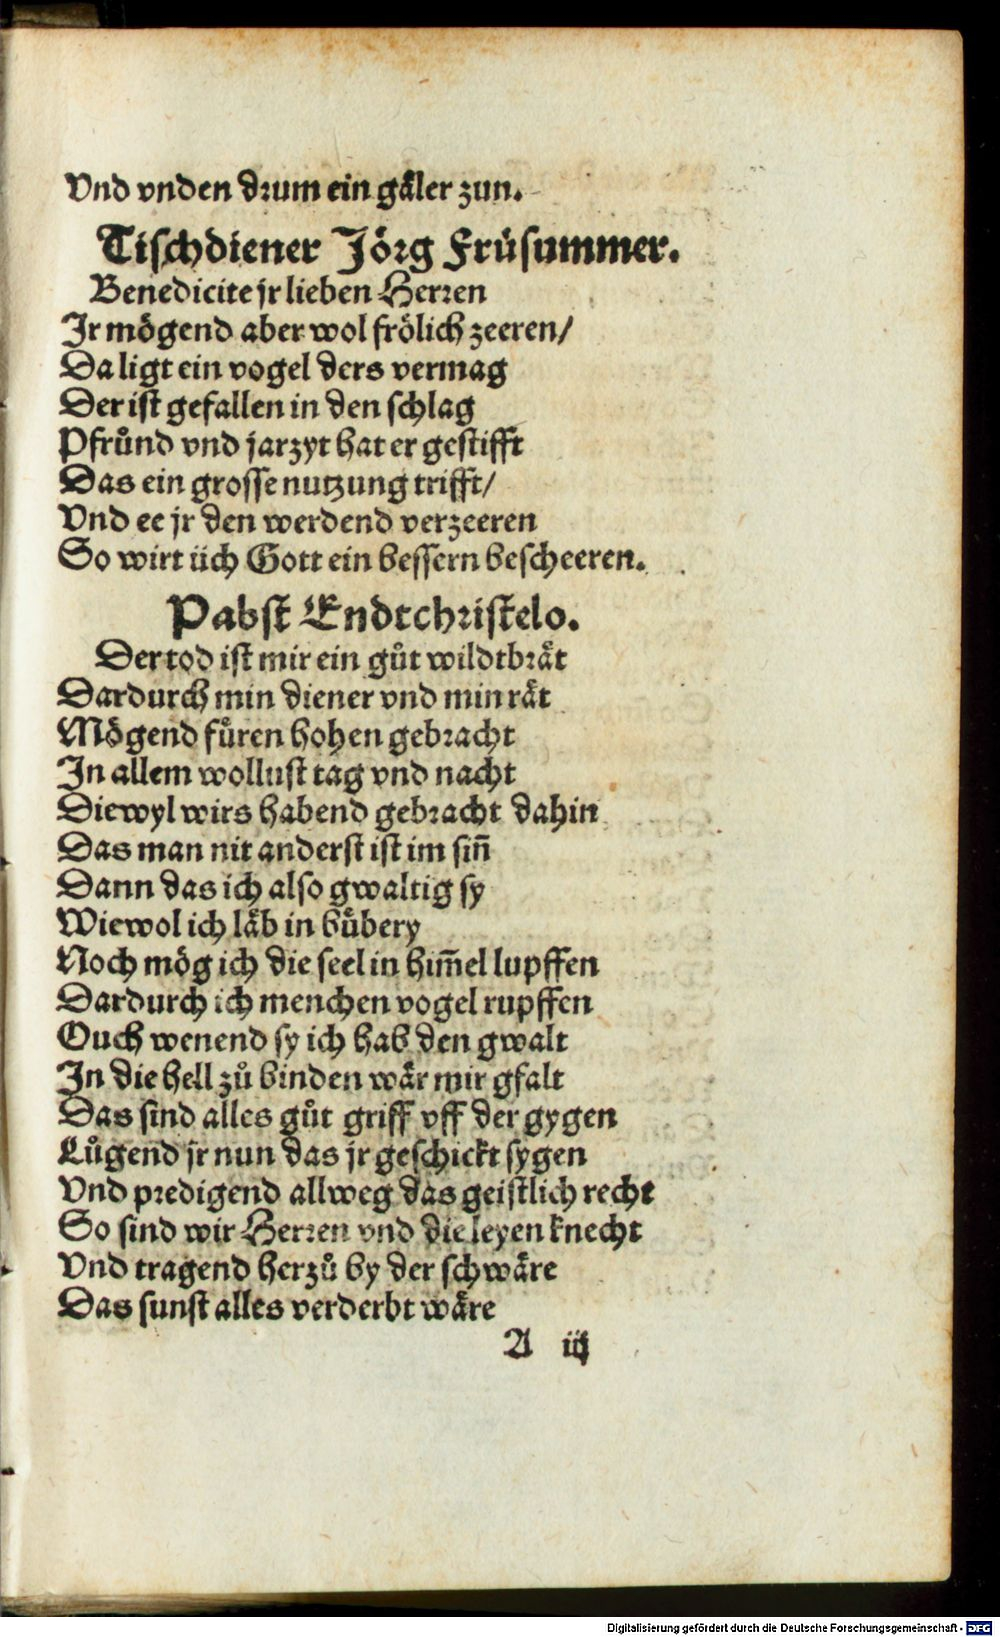 Vnd vnden drum ein gäler zun.
Tischdiener Jörg Früsummer.
Benedicite jr lieben Herren
Ir mögend aber wol frölich zeeren/
Da ligt ein vogel ders vermag
Der ist gefallen in den schlag
Pfrůnd vnd jarzyt hat er gestifft
Das ein grosse nutzung trifft/
Vnd ee jr den werdend verzeeren
So wirt üch Gott ein bessern bescheeren.
Pabst Endtchristelo.
Der tod ist mir ein gůt wildtbrät
Dardurch min diener vnd min rät
Mögend fůren hohen gebracht
In allem wollust tag vnd nacht
Diewyl wirs habend gebracht dahin
Das man nit anderst ist im sin̄
Dann das ich also gwaltig sy
Wiewol ich läb in bůbery
Noch mög ich die seel in him̄el lupffen
Dardurch ich menchen vogel rupffen
Ouch wenend sy ich hab den gwalt
In die hell zů binden wär mir gfalt
Das sind alles gůt griff vff der gygen
Lůgend jr nun das jr geschickt sygen
Vnd predigend allweg das geistlich recht
So sind wir Herren vnd die leyen knecht
Vnd tragend herzů by der schwäre
Das sunst alles verderbt wäre
A iij
Digitalisierung gefördert durch die Deutsche Forschungsgemeinschaft - DFG